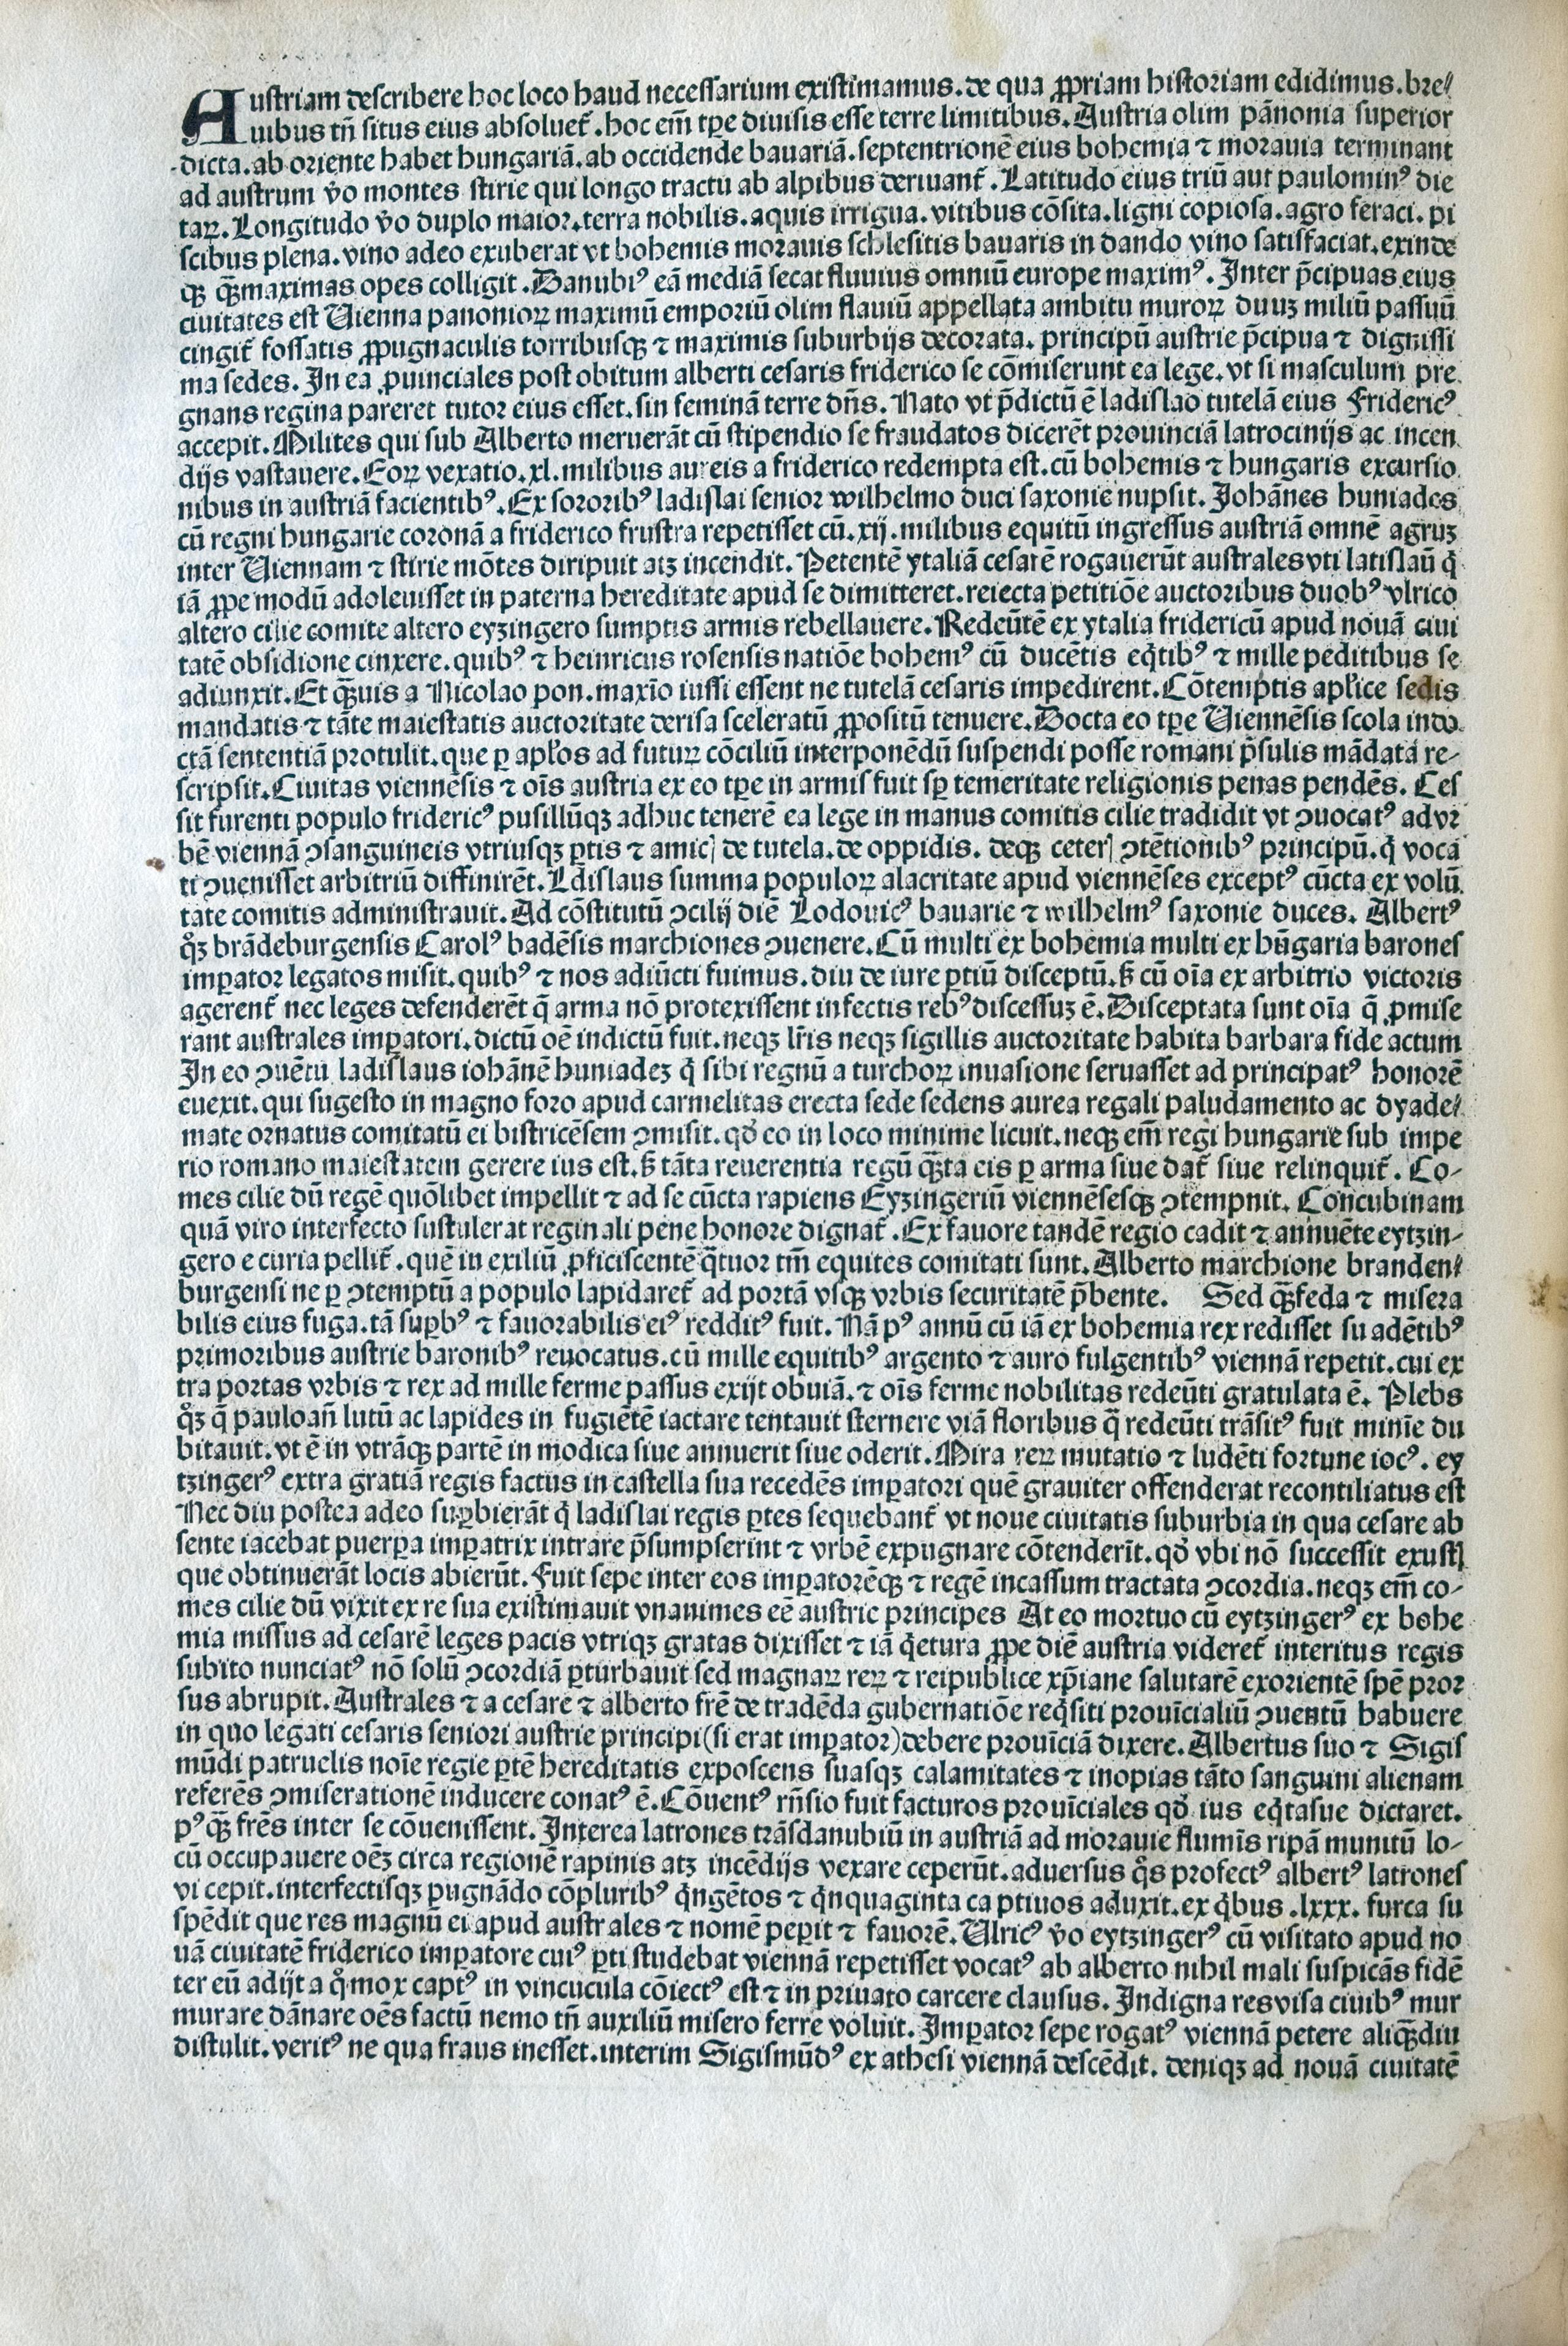 Austriam describere hoc loco haud necessarium existimamus. de qua ꝓpriam historiam edidimus. bre⸗
uibus tñ situs eius absoluet᷑. hoc em̄ tꝑe diuisis esse terre limitibus. Austria olim pānonia superior
dicta. ab oriente habet hungariā. ab occidende bauariā. septentrionē eius bohemia ⁊ morauia terminant
ad austrum v̄o montes stirie qui longo tractu ab alpibus deriuant᷑. Latitudo eius triū aut paulominꝰ die
taꝝ. Longitudo v̄o duplo maior. terra nobilis. aquis irrigua. vitibus cōsita. ligni copiosa. agro feraci. pi
scibus plena. vino adeo exuberat vt bohemis morauis schlesitis bauaris in dando vino satisfaciat. exinde
qꝫ q̄ꝫmaximas opes colligit. Danubiꝰ eā mediā secat fluuius omniū europe maximꝰ. Inter p̄cipuas eius
ciuitates est Uienna panonioꝝ maximū emporiū olim flauiū appellata ambitu muroꝝ duuꝫ miliū passuū
cingit᷑ fossatis ꝓpugnaculis torribusqꝫ ⁊ maximis suburbijs decorata. principū austrie p̄cipua ⁊ dignissi
ma sedes. In ea ꝓuinciales post obitum alberti cesaris friderico se cōmiserunt ea lege. vt si masculum pre
gnans regina pareret tutor eius esset. sin feminā terre dñs. Nato vt p̄dictū ē ladislao tutelā eius Fridericꝰ
accepit. Milites qui sub Alberto meruerāt cū stipendio se fraudatos dicerēt prouinciā latrocinijs ac incen
dijs vastauere. Eoꝝ vexatio. xl. milibus aureis a friderico redempta est. cū bohemis ⁊ hungaris excursio
nibus in austriā facientibꝰ. Ex sororibꝰ ladislai senior wilhelmo duci saxonie nupsit. Johānes huniades
cū regni hungarie coronā a friderico frustra repetisset cū. xij. milibus equitū ingressus austriā omnē agruꝫ
inter Uiennam ⁊ stirie mōtes diripuit atꝫ incendit. Petentē ytaliā cesarē rogauerūt australes vti latislaū q̄
iā ꝓpe modū adoleuisset in paterna hereditate apud se dimitteret. reiecta petitiōe auctoribus duobꝰ vlrico
altero cilie comite altero eyzingero sumptis armis rebellauere. Redeūtē ex ytalia fridericū apud nouā ciui
tatē obsidione cinxere. quibꝰ ⁊ heinricus rosensis natiōe bohemꝰ cū ducētis eq̄tibꝰ ⁊ mille peditibus se
adiunxit. Et q̄ꝫuis a Nicolao pon. maxīo iussi essent ne tutelā cesaris impedirent. Cōtemptis apl̄ice sedis
mandatis ⁊ tāte maiestatis auctoritate derisa sceleratū ꝓpositū tenuere. Docta eo tꝑe Uiennēsis scola indo
ctā sententiā protulit. que ꝑ apl̄os ad futuꝝ cōciliū interponēdū suspendi posse romani p̄sulis mādata re⸗
scripsit. Ciuitas viennēsis ⁊ oīs austria ex eo tꝑe in armis fuit sꝑ temeritate religionis penas pendēs. Ces
sit furenti populo fridericꝰ pusillūqꝫ adhuc tenerē ea lege in manus comitis cilie tradidit vt ꝯuocatꝰ ad vr
bē viennā ꝯsanguineis vtriusqꝫ ꝑtis ⁊ amicꝭ de tutela. de oppidis. deqꝫ ceterꝭ ꝯtētionibꝰ principū. q̄ voca
ti ꝯuenisset arbitriū diffinirēt. Ldislaus summa populoꝝ alacritate apud viennēses exceptꝰ cūcta ex volū
tate comitis administrauit. Ad cōstitutū ꝯcilij diē Lodouicꝰ bauarie ⁊ wilhelmꝰ saxonie duces. Albertꝰ
qͦꝫ brādeburgensis Carolꝰ badēsis marchiones ꝯuenere. Cū multi ex bohemia multi ex hūgaria barones
imꝑator legatos misit. quibꝰ ⁊ nos adiūcti fuimus. diu de iure ꝑtiū disceptū. ꝫ cū oīa ex arbitrio victoris
agerent᷑ nec leges defenderēt q̄ arma nō protexissent infectis rebꝰ discessuꝫ ē. Disceptata sunt oīa q̄ ꝓmise
rant australes imꝑatori. dictū oē indictū fuit. neqꝫ lr̄is neqꝫ sigillis auctoritate habita barbara fide actum
In eo ꝯuētu ladislaus iohānē huniadeꝫ q̄ sibi regnū a turchoꝝ inuasione seruasset ad principatꝰ honorē
euexit. qui sugesto in magno foro apud carmelitas erecta sede sedens aurea regali paludamento ac dyade⸗
mate ornatus comitatū ei bistricēsem ꝯmisit. qđ eo in loco minime licuit. neqꝫ em̄ regi hungarie sub impe
rio romano maiestatem gerere ius est. ꝫ tāta reuerentia regū q̄ꝫta eis ꝑ arma siue dat᷑ siue relinquit᷑. Co⸗
mes cilie dū regē quōlibet impellit ⁊ ad se cūcta rapiens Eyzingeriū viennēsesqꝫ ꝯtempnit. Concubinam
quā viro interfecto sustulerat reginali pene honore dignat᷑. Ex fauore tandē regio cadit ⁊ annuēte eytzin⸗
gero e curia pellit᷑. quē in exiliū ꝓficiscentē q̄tuor tm̄ equites comitati sunt. Alberto marchione branden⸗
burgensi ne ꝑ ꝯtemptū a populo lapidaret᷑ ad portā vsqꝫ vrbis securitatē p̄bente. Sed q̄ꝫ feda ⁊ misera
bilis eius fuga. tā suꝑbꝰ ⁊ fauorabilis eiꝰ redditꝰ fuit. Nā pꝰ annū cū iā ex bohemia rex redisset suadētibꝰ
primoribus austrie baronibꝰ reuocatus. cū mille equitibꝰ argento ⁊ auro fulgentibꝰ viennā repetit. cui ex
tra portas vrbis ⁊ rex ad mille ferme passus exijt obuiā. ⁊ oīs ferme nobilitas redeūti gratulata ē. Plebs
qͦꝫ q̄ pauloañ lutū ac lapides in fugiētē iactare tentauit sternere viā floribus q̄ redeūti trāsitꝰ fuit minīe du
bitauit. vt ē in vtrāqꝫ partē in modica siue annuerit siue oderit. Mira reꝝ mutatio ⁊ ludēti fortune iocꝰ. ey
tzingerꝰ extra gratiā regis factus in castella sua recedēs imꝑatori quē grauiter offenderat recontiliatus est
Nec diu postea adeo suꝑbierāt q̄ ladislai regis ꝑtes sequebant᷑ vt noue ciuitatis suburbia in qua cesare ab
sente iacebat puerꝑa imꝑatrix intrare p̄sumpserint ⁊ vrbē expugnare cōtenderīt. qđ vbi nō successit exustꝭ
que obtinuerāt locis abierūt. Fuit sepe inter eos imꝑatorēqꝫ ⁊ regē incassum tractata ꝯcordia. neqꝫ em̄ co⸗
mes cilie dū vixit ex re sua existimauit vnanimes eē austrie principes At eo mortuo cū eytzingerꝰ ex bohe
mia missus ad cesarē leges pacis vtriqꝫ gratas dixisset ⁊ iā q̄etura ꝓpe diē austria videret᷑ interitus regis
subito nunciatꝰ nō solū ꝯcordiā ꝑturbauit sed magnaꝝ reꝝ ⁊ reipublice xp̄iane salutarē exorientē spē pror
sus abrupit. Australes ⁊ a cesare ⁊ alberto fr̄e de tradēda gubernatiōe req̄siti prouīcialiū ꝯuentū habuere
in quo legati cesaris seniori austrie principi (si erat imꝑator) debere prouīciā dixere. Albertus suo ⁊ Sigis
mūdi patruelis noīe regie ꝑtē hereditatis exposcens suasqꝫ calamitates ⁊ inopias tāto sanguini alienam
referēs ꝯmiserationē inducere conatꝰ ē. Cōuentꝰ rn̄sio fuit facturos prouīciales qđ ius eq̄tasue dictaret.
pꝰqꝫ fr̄es inter se cōuenissent. Interea latrones trāsdanubiū in austriā ad morauie flumīs ripā munitū lo⸗
cū occupauere oēꝫ circa regionē rapinis atꝫ incēdijs vexare ceperūt. aduersus qͦs profectꝰ albertꝰ latrones
vi cepit. interfectisqꝫ pugnādo cōpluribꝰ q̄ngētos ⁊ q̄nquaginta captiuos aduxit. ex q̄bus. lxxx. furca su
spēdit que res magnū ei apud australes ⁊ nomē peꝑit ⁊ fauorē. Ulricꝰ v̄o eytzingerꝰ cū visitato apud no
uā ciuitatē friderico imꝑatore cuiꝰ ꝑti studebat viennā repetisset vocatꝰ ab alberto nihil mali suspicās fidē
ter eū adijt a qͦ mox captꝰ in vincucula cōiectꝰ est ⁊ in priuato carcere clausus. Indigna res visa ciuibꝰ mur
murare dānare oēs factū nemo tñ auxiliū misero ferre voluit. Imꝑator sepe rogatꝰ viennā petere aliq̄ꝫdiu
distulit. veritꝰ ne qua fraus inesset. interim Sigismūdꝰ ex athesi viennā descēdit. deniqꝫ ad nouā ciuitatē